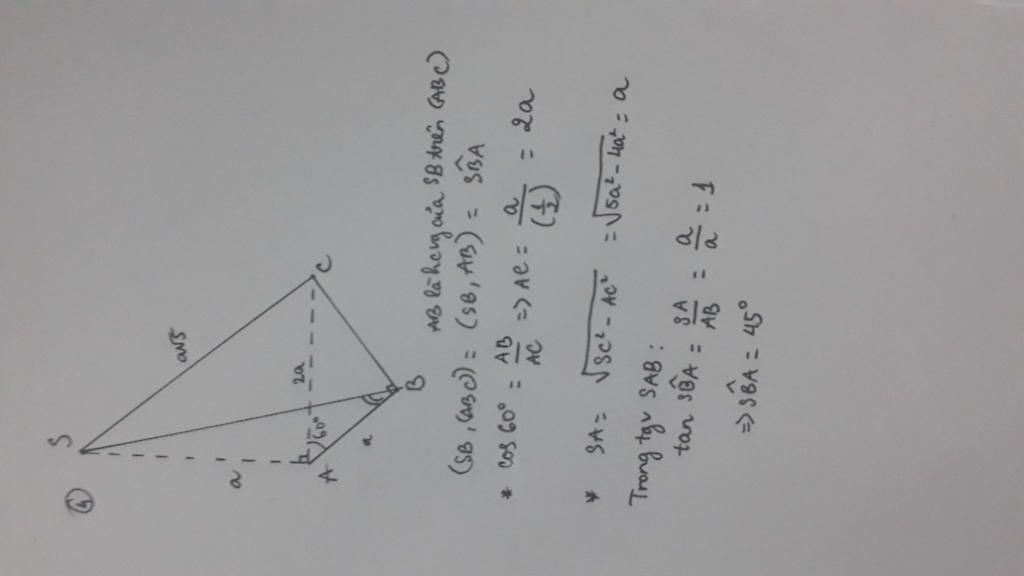 ④
S
a
a√5
2a
60°
A
a
B
C
AB là hcvg của SB trên (ABC)
(SB, (ABC)) = (SB, AB) = SB̂A
* cos 60° = AB/AC => AC = a/(1/2) = 2a
* SA = √(SC² - AC²) = √(5a² - 4a²) = a
Trong tgv SAB :
tan SB̂A = SA/AB = a/a = 1
=> SB̂A = 45°